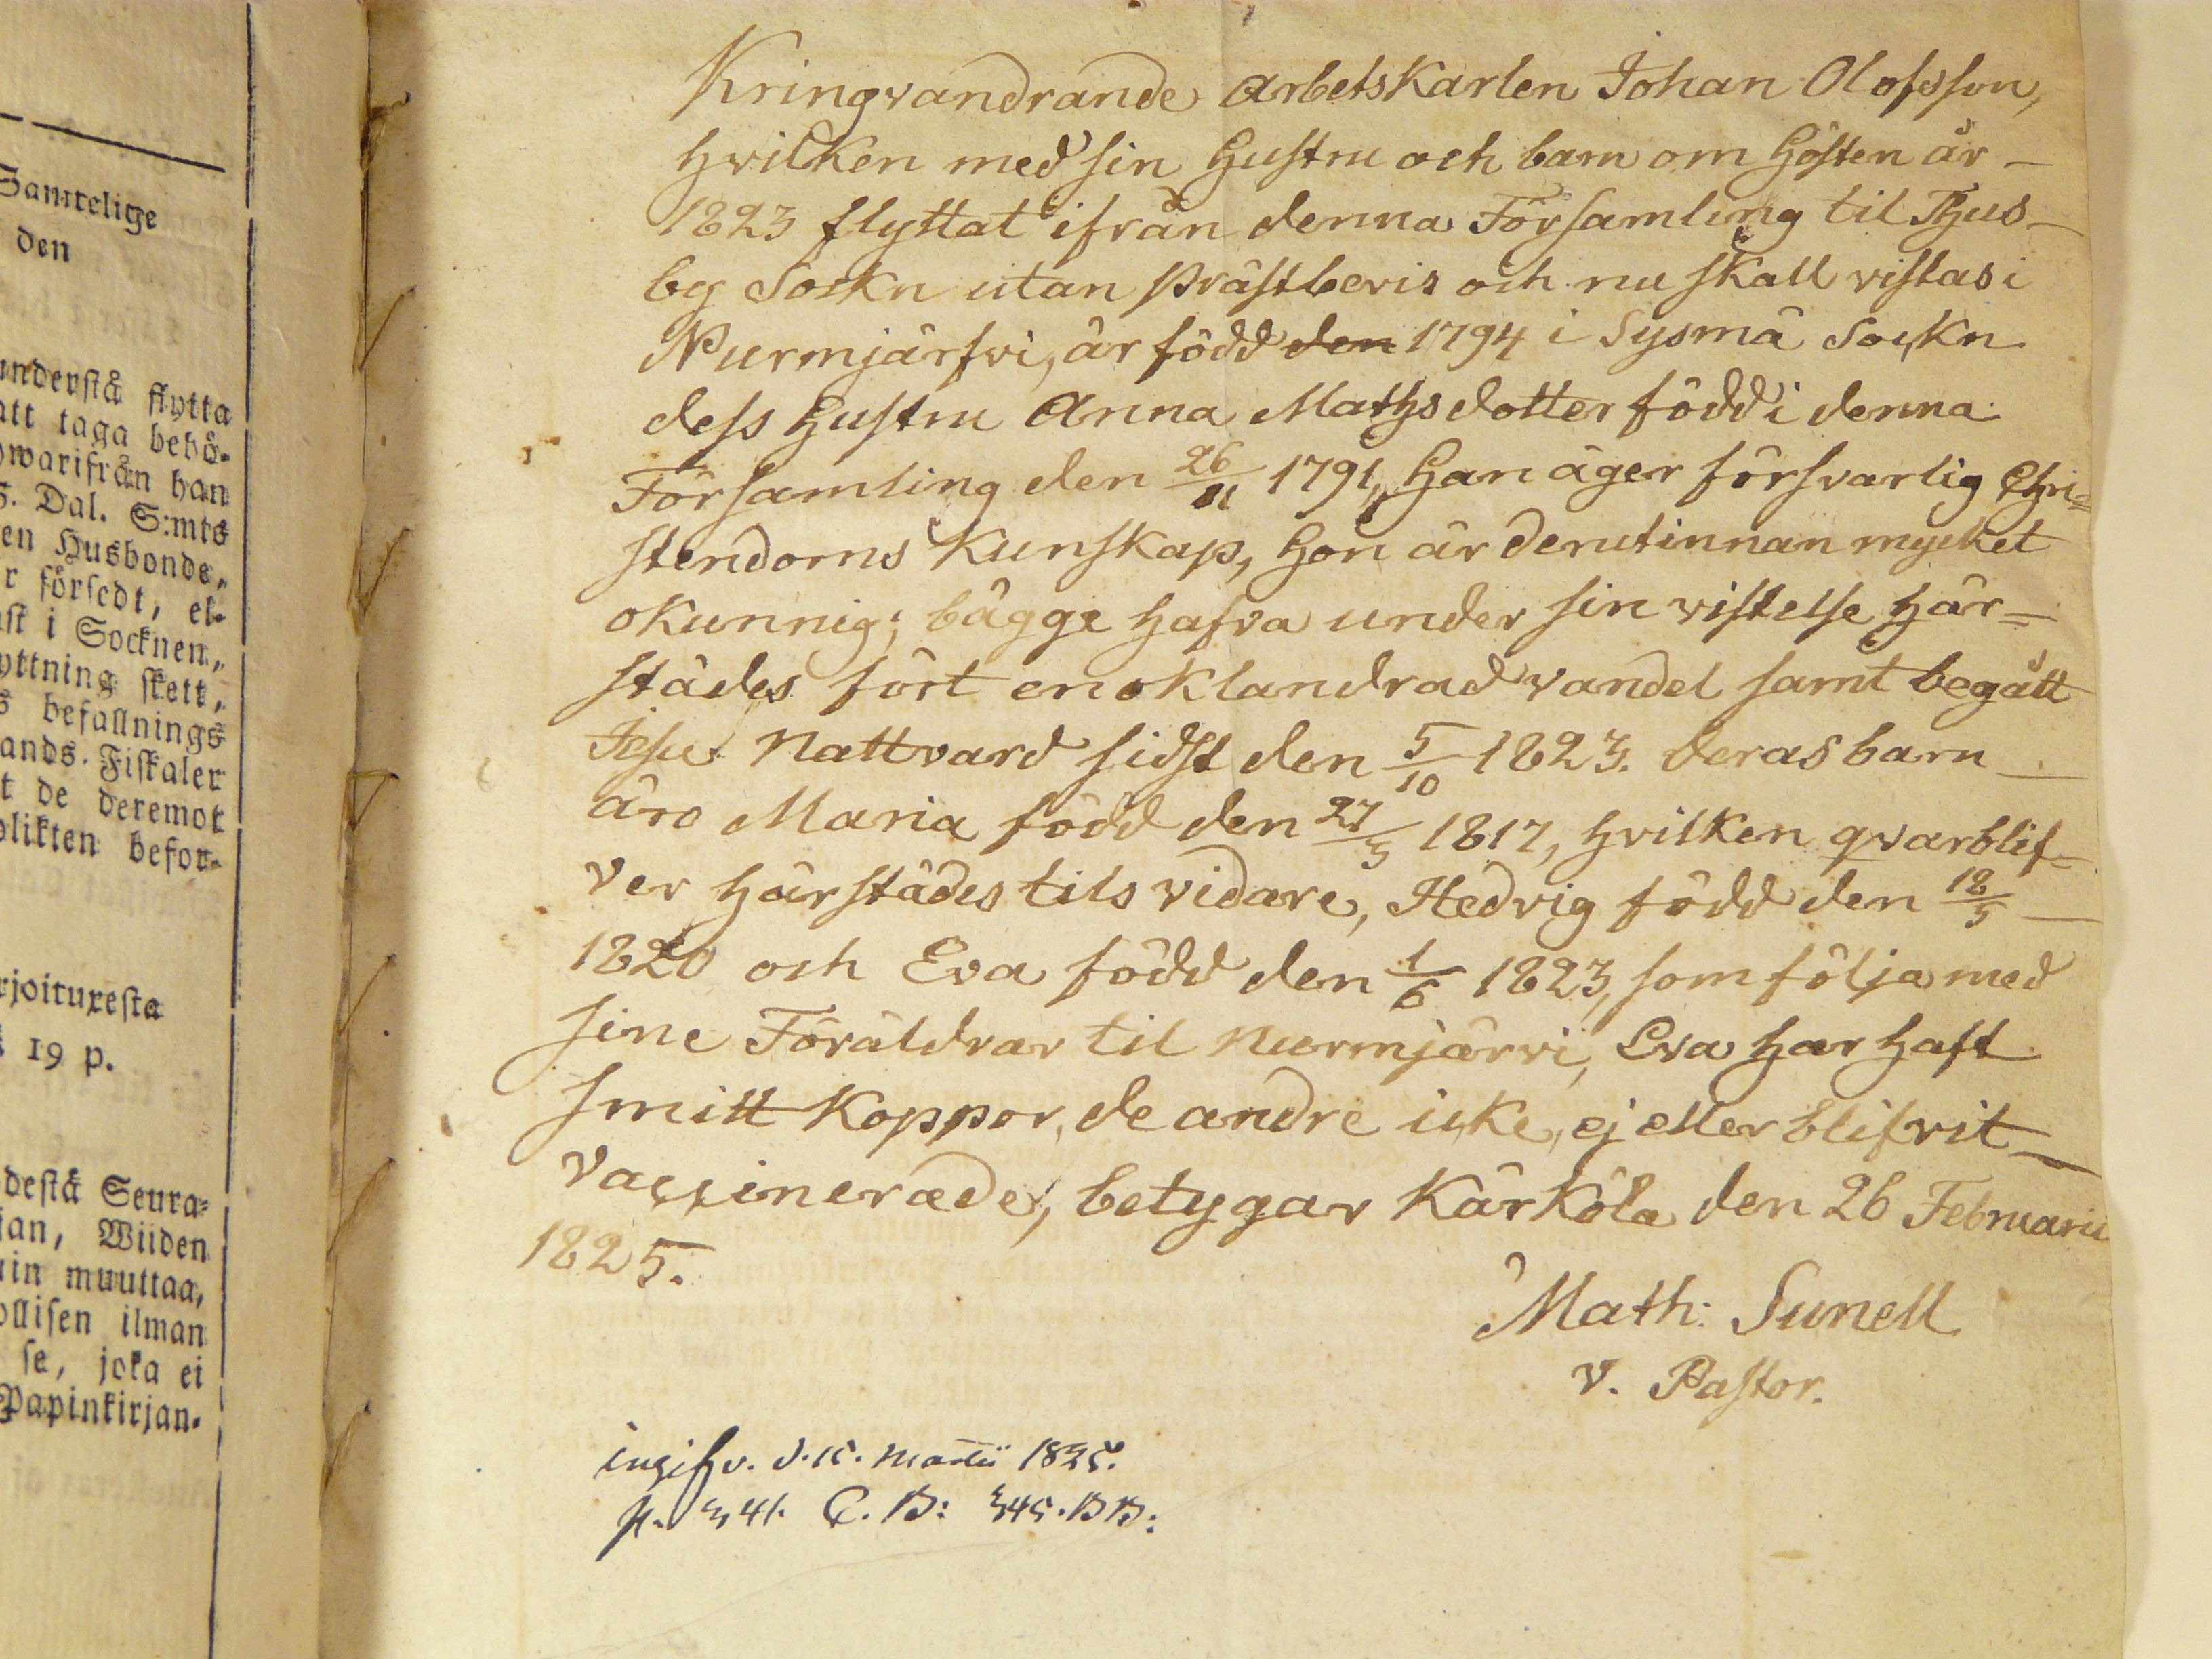 Samtelige
den
understå flytta
att taga behö-
hwarifrån han
S. Dal. S:mts
en Husbonde,
r försedt, el-
ast i Socknen,
yttning skett,
s befallnings
ands. Fiskaler
t de deremot
plikten befor-
rjoituxesta
19 p.
destä Seura-
jan, Wiiden
uin muuttaa,
ollisen ilman
se, joka ei
Papinkirjan-
Kringvandrande arbetsKarlen Johan Olofsson,
hvilken med sin Hustru och barn om Hösten år -
1823 flyttat ifrån denna Församling til Thus-
by Sockn utan prästbevis och nu skall vistas i
Nurmjärfvi, är född den 1794 i Sysmä Sockn
dess Hustru Anna Mathsdotter född i denna
Församling den 26/11 1791, Han äger försvarlig Chri=
stendoms Kunskap, Hon är derutinnan mycket
okunnig; bägge hafva under sin vistelse här=
städes fört en oklandrad vandel samt begått
Jesu Nattvard sidst den 5/10 1823. Deras barn -
äro Maria född den 27/3 1817, hvilken qvarblif=
ver härstädes tils vidare, Hedvig född den 18/5 -
1820 och Eva född den 1/6 1823, som följa med
sine Föräldrar til Nurmjärvi, Eva har haft
smitt Koppor, de andre icke, ej eller blifvit -
vaccinerade, betygar Kärkölä den 26 Februarii
1825.
Math: Sunell
V. Pastor.
ingifv. d. 15. Martii 1825.
p. 341. C. B: 345. BB: